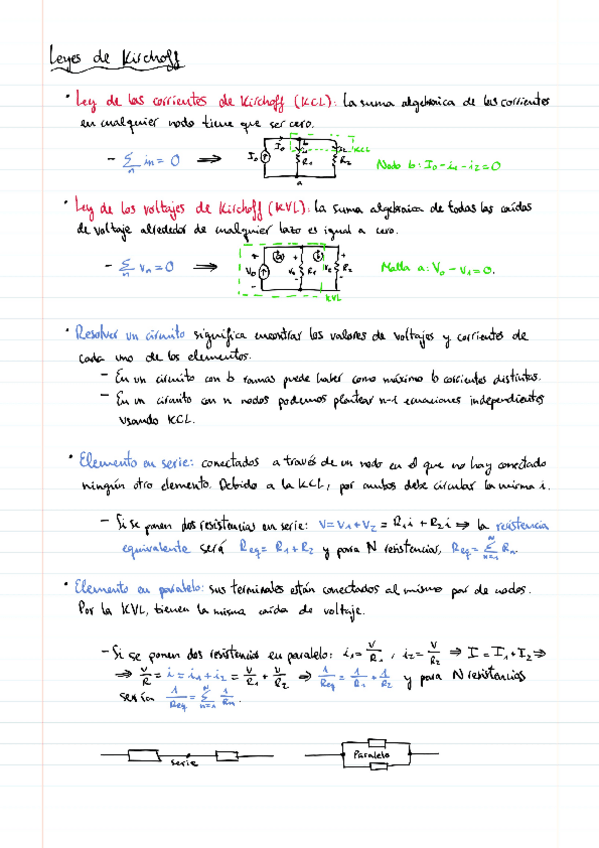 Leyes de Kirchoff
· Ley de las corrientes de Kirchoff (KCL): La suma algebraica de las corrientes
en cualquier nodo tiene que ser cero.
- Σ in = 0 ⟹
n
I₀
I₀
b
i₁
i₂
R₁
R₂
a
KCL
Nodo b: I₀ - i₁ - i₂ = 0
· Ley de los voltajes de Kirchoff (KVL): la suma algebraica de todas las caídas
de voltaje alrededor de cualquier lazo es igual a cero.
- Σ vn = 0 ⟹
n
V₀
v₁
R₁
v₂
R₂
KVL
Malla a: V₀ - V₁ = 0.
· Resolver un circuito significa encontrar los valores de voltajes y corrientes de
cada uno de los elementos.
- En un circuito con b ramas puede haber como máximo b corrientes distintas.
- En un circuito con n nodos podemos plantear n-1 ecuaciones independientes
usando KCL.
· Elemento en serie: conectados a través de un nodo en el que no hay conectado
ningún otro elemento. Debido a la KCL, por ambos debe circular la misma i.
- Si se ponen dos resistencias en serie: V = V₁ + V₂ = R₁i + R₂i ⟹ la resistencia
equivalente será Req = R₁ + R₂ y para N resistencias, Req = Σ(n=1, N) Rn
· Elemento en paralelo: sus terminales están conectados al mismo par de nodos.
Por la KVL, tienen la misma caída de voltaje.
- Si se ponen dos resistencias en paralelo: i₁ = V/R₁, i₂ = V/R₂ ⟹ I = I₁ + I₂ ⟹
⟹ V/R = i = i₁ + i₂ = V/R₁ + V/R₂ ⟹ 1/Req = 1/R₁ + 1/R₂ y para N resistencias
serían 1/Req = Σ(n=1, N) 1/Rn.
serie
Paralelo